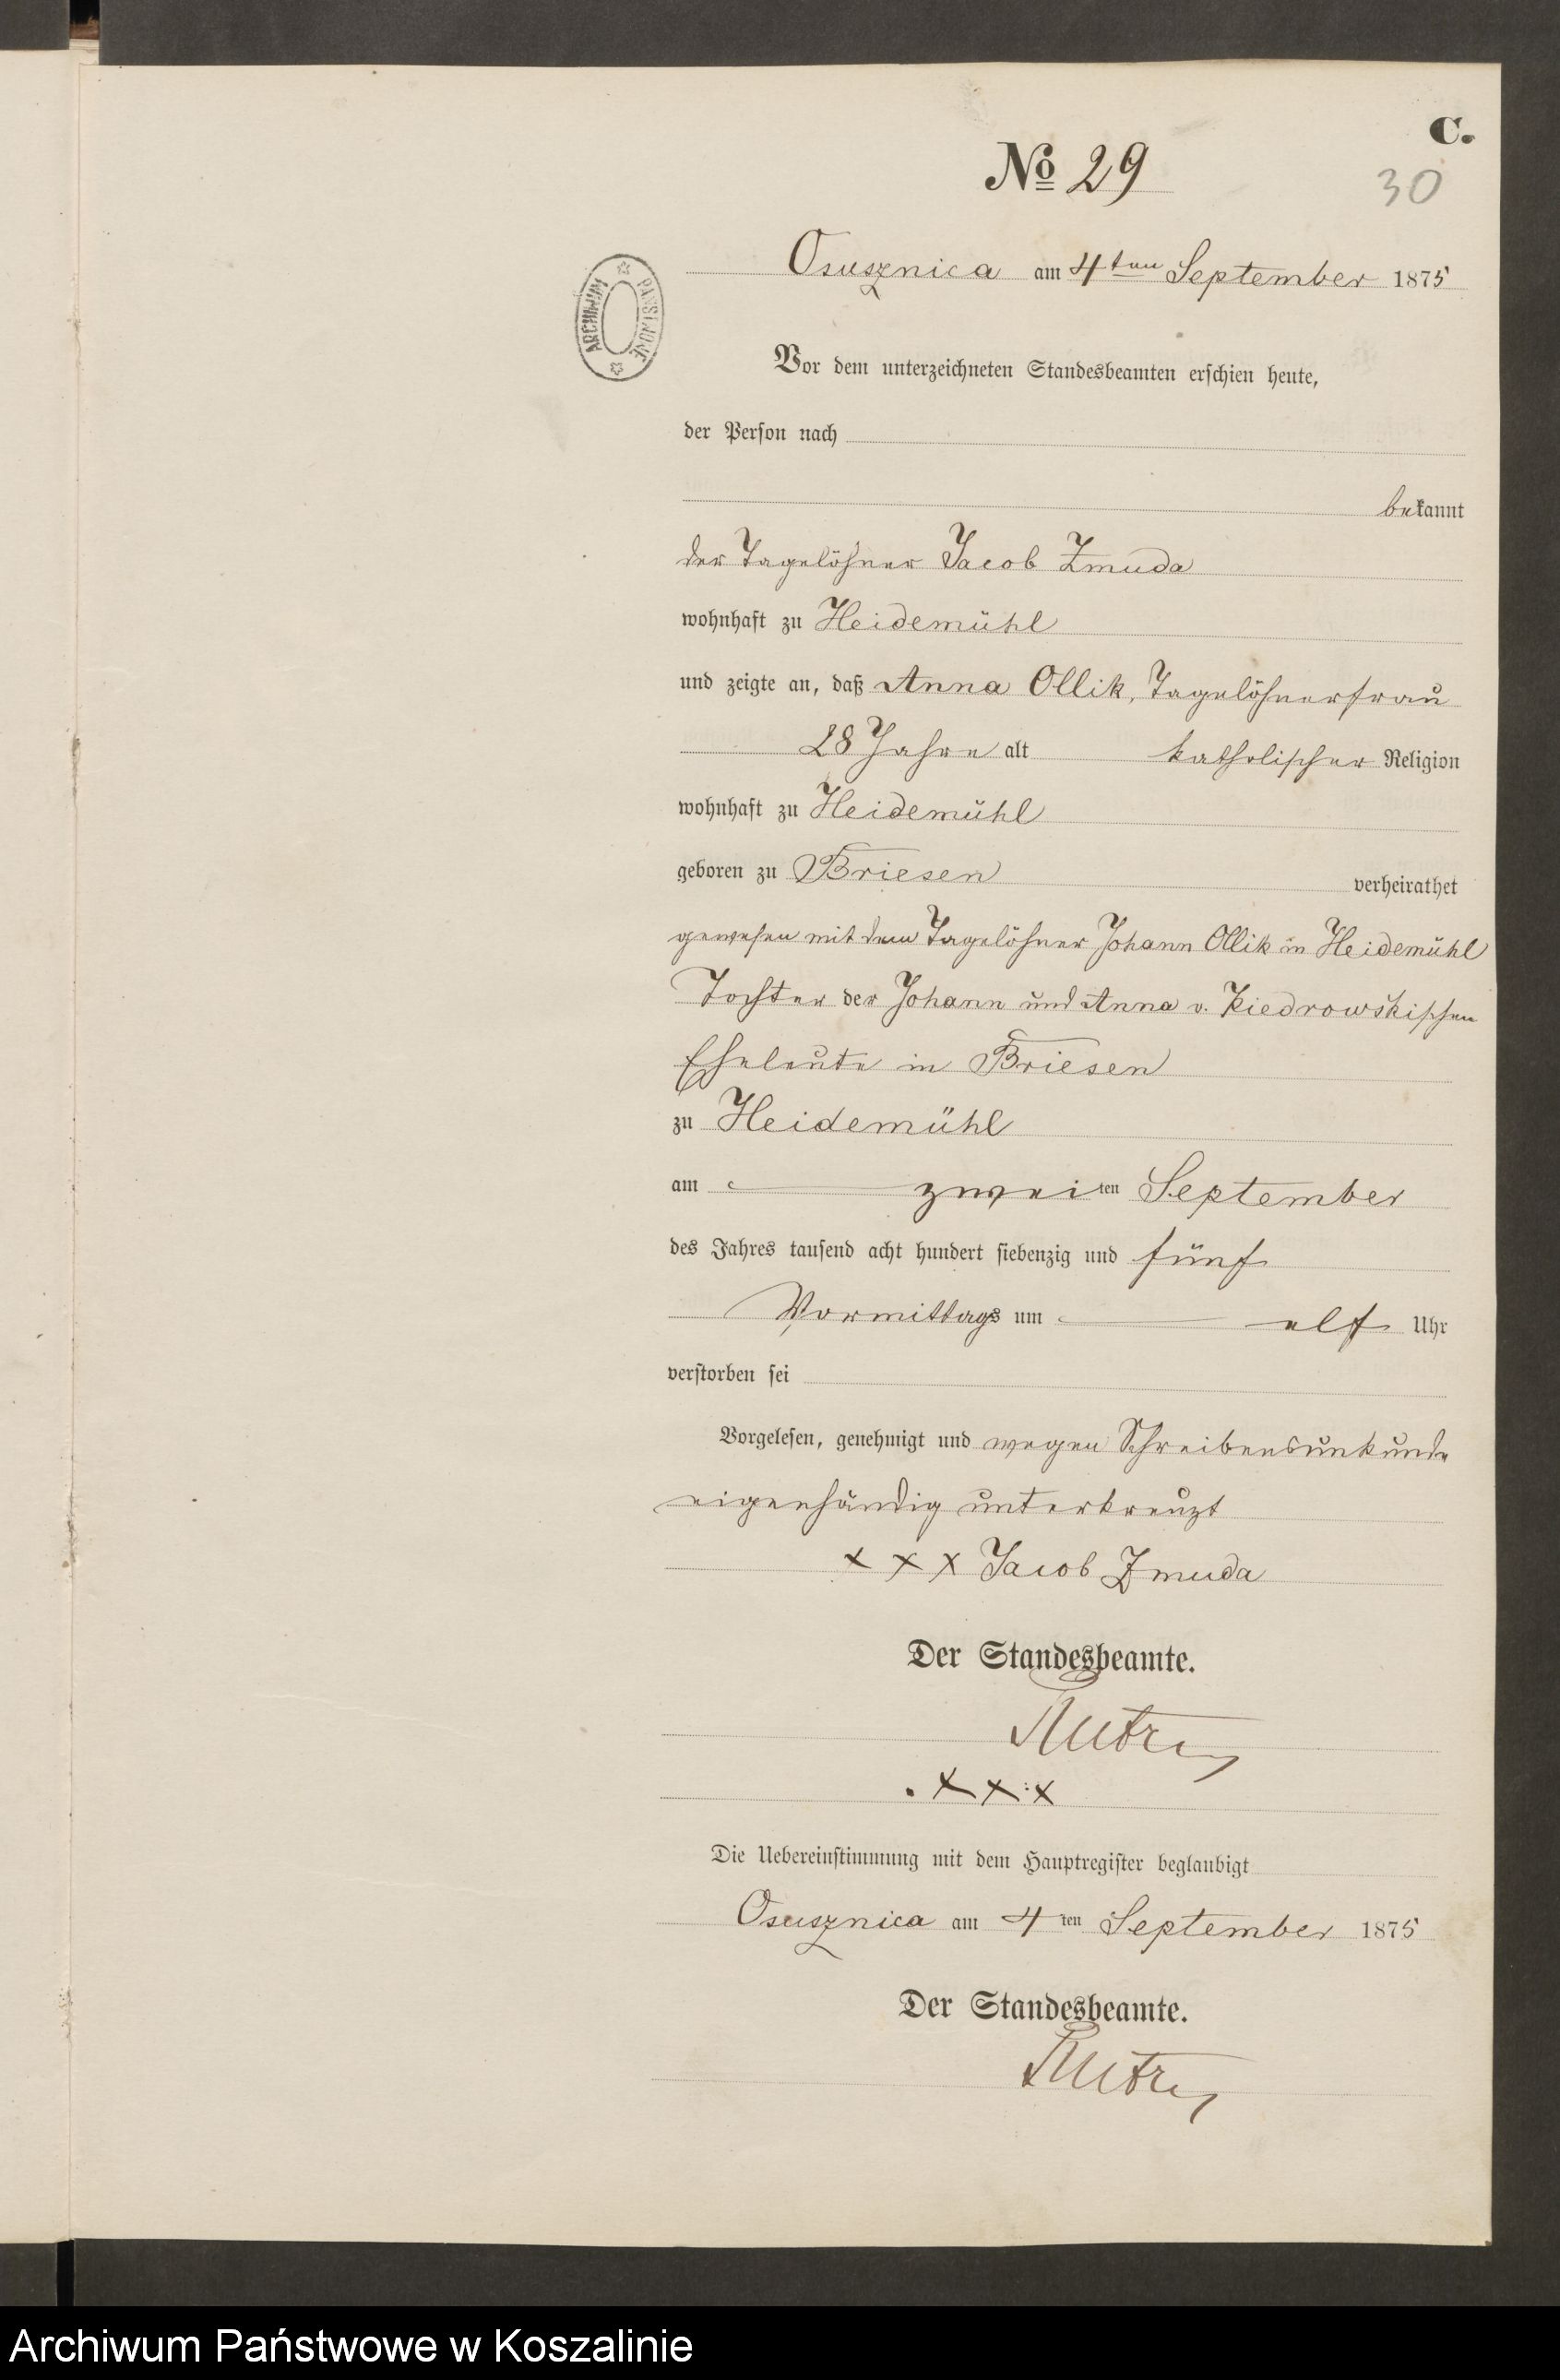 C.
No 29
30
Osusznica am 4ten September 1875
ARCHIWUM PAŃSTWOWE
Vor dem unterzeichneten Standesbeamten erschien heute,
der Person nach
bekannt
der Tagelöhner Jacob Zmuda
wohnhaft zu Heidemühl
und zeigte an, daß Anna Ollik, Tagelöhnerfrau
28 Jahre alt katholischer Religion
wohnhaft zu Heidemühl
geboren zu Briesen verheirathet
gewesen mit dem Tagelöhner Johann Ollik in Heidemühl
Tochter der Johann und Anna v. Kiedrowskischen
Eheleute in Briesen
zu Heidemühl
am zweiten September
des Jahres tausend acht hundert siebenzig und fünf
Vormittags um elf Uhr
verstorben sei
Vorgelesen, genehmigt und wegen Schreibensunkunde
eigenhändig unterkreuzt
x x x Jacob Zmuda
Der Standesbeamte.
x x x
Die Uebereinstimmung mit dem Hauptregister beglaubigt
Osusznica am 4ten September 1875
Der Standesbeamte.
Archiwum Państwowe w Koszalinie